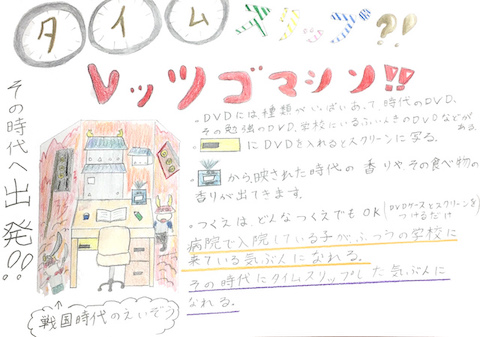 タイムスリップ?!
レッツゴマシン!!
その時代へ出発!!
・DVDには種類がいっぱいあって時代のDVD、
その勉強のDVD、学校にいるふんいきのDVDなどが
ある。
・にDVDを入れるとスクリーンに写る。
・から映された時代の香りやその食べ物の
香りが出てきます。
・つくえはどんなつくえでもOK(DVDケースとスクリーンを
つけるだけ
病院で入院している子がふつうの学校に
来ている気ぶんになれる。
その時代にタイムスリップした気ぶんに
なれる。
戦国時代のえいぞう